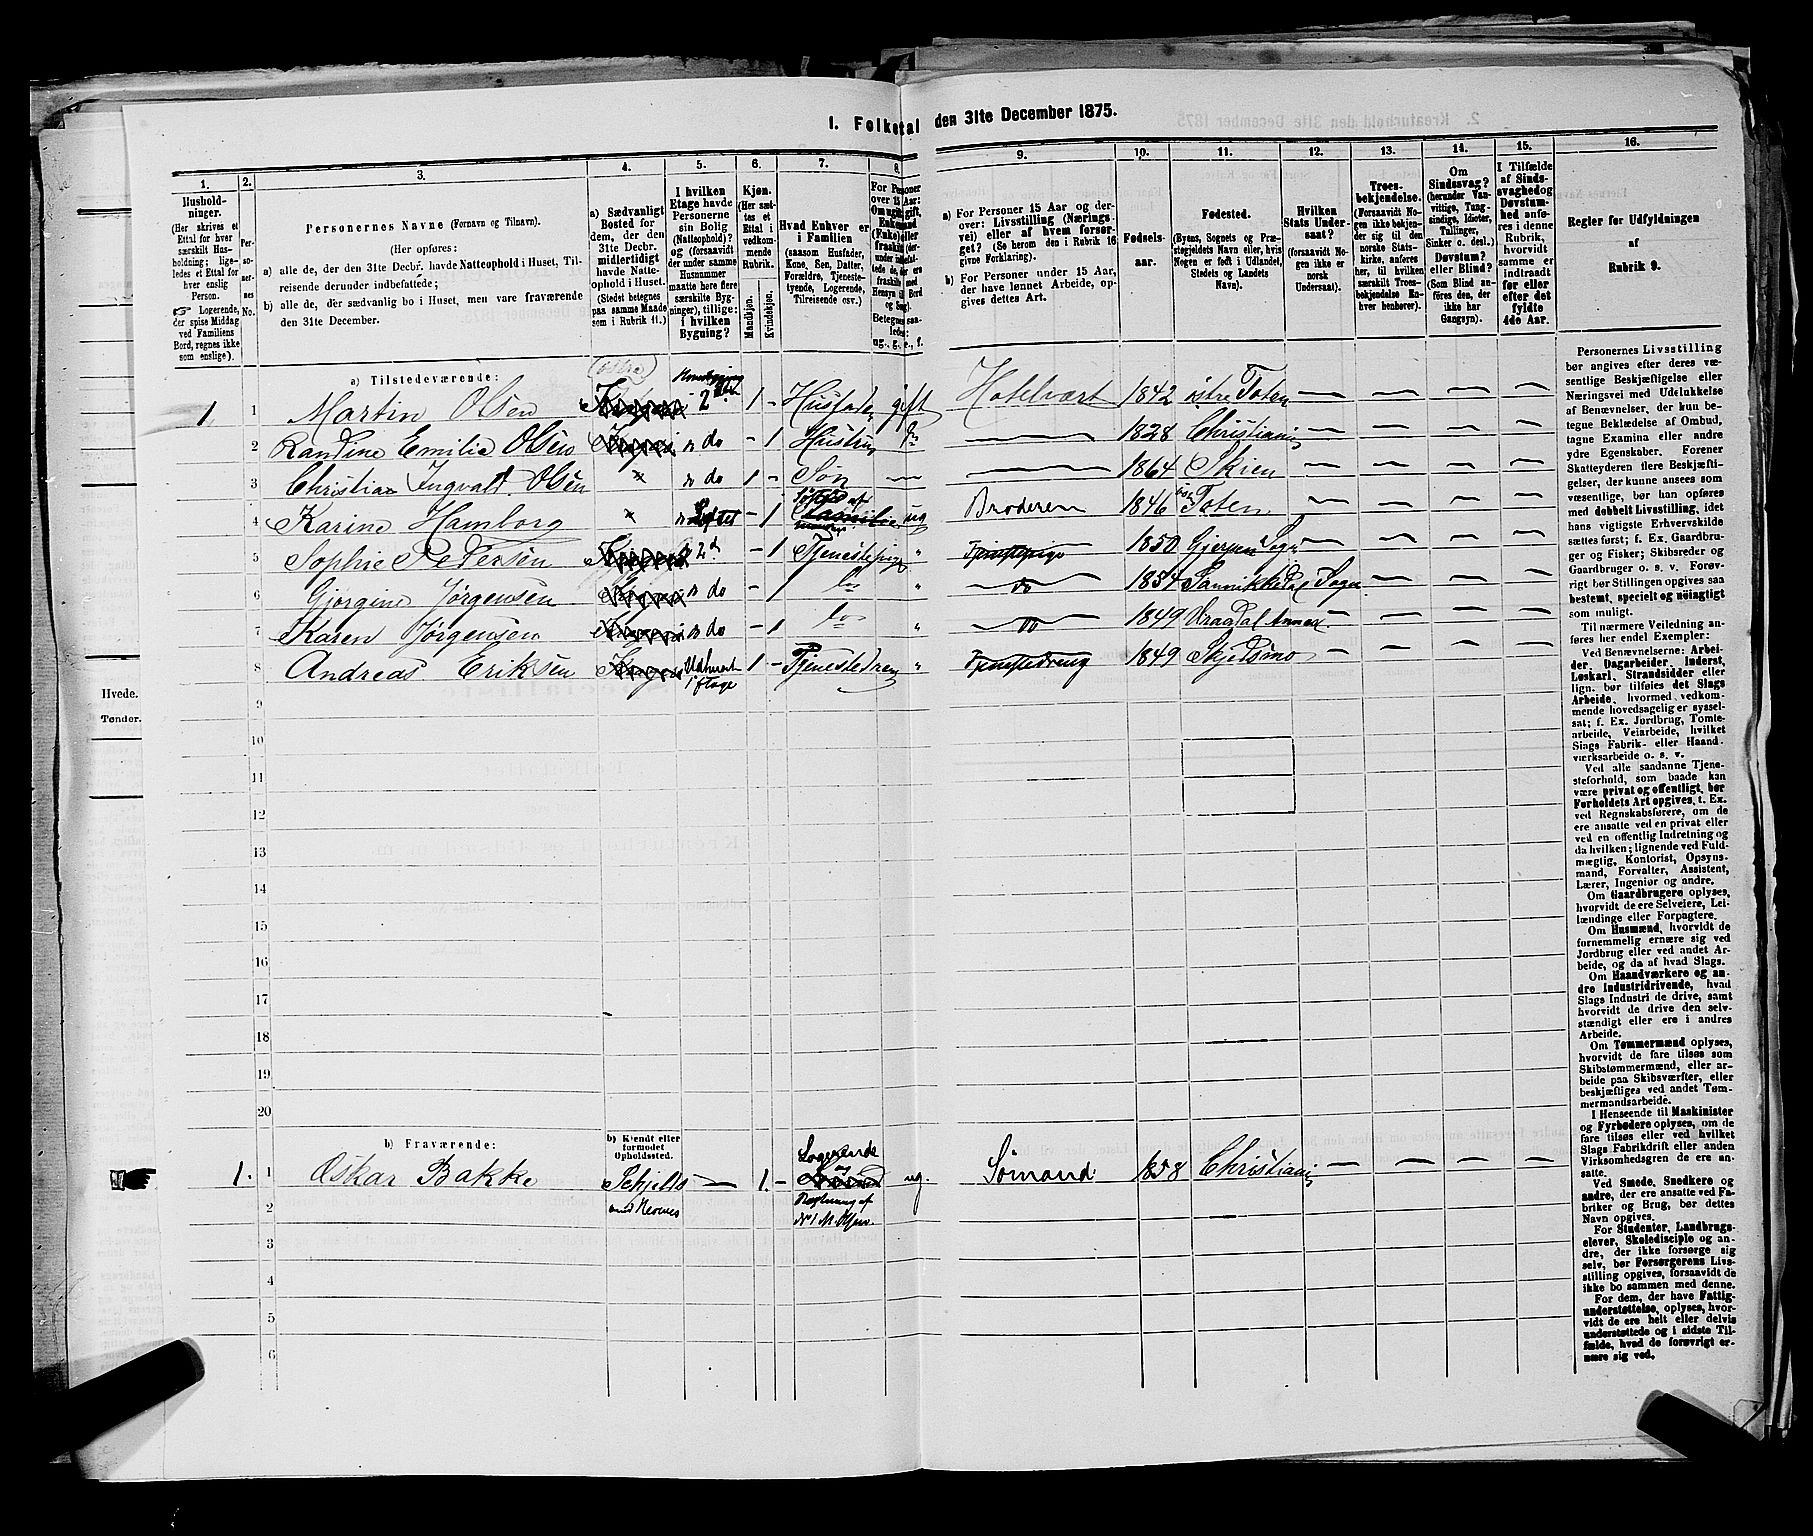 1. Folketal den 31te December 1875.
1. 2. 3. 4. 5. 6. 7. 8. 9. 10. 11. 12. 13. 14. 15. 16.
Hushold-
ninger.
(Her skrives et
Ettal for hver
særskilt Hus-
holdning; lige-
ledes et Ettal for
hver enslig
Person.
☞ Logerende,
der spise Middag
ved Familiens
Bord, regnes ikke
som enslige).
Per-
so-
ner-
nes
No.
Personernes Navne (Fornavn og Tilnavn).
(Her opføres:
a) alle de, der den 31te Decbr. havde Natteophold i Huset, Til-
reisende derunder indbefattede;
b) alle de, der sædvanlig bo i Huset, men vare fraværende
den 31te December.
a) Sædvanligt
Bosted for
dem, der den
31te Decbr.
midlertidigt
havde Natte-
ophold i Huset.
(Stedet betegnes
paa samme Maade
som i Rubrik 11.)
I hvilken
Etage havde
Personerne
sin Bolig
(Natteophold)?
og (forsaavidt
der under samme
Husnummer
maatte høre flere
særskilte Byg-
ninger), tillige:
i hvilken
Bygning?
Kjøn.
(Her sæt-
tes et
Ettal i
vedkom-
mende
Rubrik.)
Mandkjøn.
Kvindekjøn.
Hvad Enhver er
i Familien
(saasom Husfader,
Kone, Søn, Datter,
Forældre, Tjeneste-
tyende, Logerende,
Tilreisende osv.)
For Personer
over 15 Aar:
Betegnes saa-
ledes:
ug., g., e., f.
a) For Personer 15 Aar og der-
over: Livsstilling (Nærings-
vei) eller af hvem forsør-
get? (Se herom den i Rubrik 16
givne Forklaring).
b) For Personer under 15 Aar,
der have lønnet Arbeide, op-
gives dettes Art.
Fødsels-
aar.
Fødested.
(Byens, Sognets og Præ-
stegjeldets Navn eller, hvis
Nogen er født i Udlandet,
Stedets og Landets
Navn).
Hvilken
Stats Under-
saat?
(forsaavidt No-
gen ikke er
norsk
Undersaat).
Troes-
bekjendelse.
(Forsaavidt No-
gen ikke bekjen-
der sig til den
norske Stats-
kirke, anføres
her, til hvilken
særskilt Troes-
bekjendelse En-
hver henhører).
Om
Sindssvag?
(herunder Van-
vittige, Tung-
sindige, Idioter,
Tullinger,
Sinker o. desl.)
Døvstum?
eller Blind?
(Som Blind an-
føres den, der
ikke har
Gangsyn).
I Tilfælde
af Sinds-
svaghed og
Døvstum-
hed anfø-
res i denne
Rubrik,
hvorvidt
samme er
indtraadt
før eller
efter det
fyldte
4de Aar.
Regler for Udfyldningen
af
Rubrik 9.
a) Tilstedeværende:
1. 1 Martin Olsen 2 1 - Husfader gift Hotelvært 1842 østre Toten
2 Randine Emilie Olsen " do - 1 Hustru 1828 Christiania
3 Christian Ingvald Olsen " do 1 - Søn 1864 Skien
4 Karine Hamborg " - 1 ug Broderen 1846 Toten
5 Sophie Pedersen 2d - 1 Tjenestepige " Tjenestepige 1850 Gjerpen Sogn
6 Gjorgine Jørgensen " do - 1 do " do 1854 Sannikkedal Sogn
7 Karen Jørgensen " do - 1 do " do 1849 Dragdal Annex
8 Andreas Eriksen 1 - Tjenestedreng " Tjenestedreng 1849 Skjedsmo
9
10
11
12
13
14
15
16
17
18
19
20
b) Fraværende:
b) Kjendt eller
formodet
Opholdssted.
1. 1 Oskar Bakke 1. - Logerende ug. Sømand 1858 Christiania
2
3
4
5
6
Hvede.
Tønder.
Personernes Livsstilling
bør angives efter deres væ-
sentlige Beskjæftigelse eller
Næringsvei med Udelukkelse
af Benævnelser, der kun be-
tegne Beklædelse af Ombud,
tagne Examina eller andre
ydre Egenskaber. Forener
Skatteyderen flere Beskjæfti-
gelser, der kunne ansees som
væsentlige, bør han opføres
med dobbelt Livsstilling, idet
hans vigtigste Erhvervskilde
sættes først; f. Ex. Gaardbru-
ger og Fisker; Skibsreder og
Gaardbruger o. s. v. Forøv-
rigt bør Stillingen opgives saa
bestemt, specielt og nøiagtigt
som muligt.
Til nærmere Veiledning an-
føres her endel Exempler:
Ved Benævnelserne: Arbei-
der, Dagarbeider, Inderst,
Løskarl, Strandsidder eller
lign. bør tilføies det Slags
Arbeide, hvormed vedkom-
mende hovedsagelig er syssel-
sat; f. Ex. Jordbrug, Tomte-
arbeide, Veiarbeide, hvilket
Slags Fabrik- eller Haand-
værksarbeide o. s. v.
Ved alle saadanne Tjene-
steforhold, som baade kan
være privat og offentligt, bør
Forholdets Art opgives, t. Ex.
ved Regnskabsførere, om de
ere ansatte ved en privat eller
ved en offentlig Indretning og
da hvilken; lignende ved Fuld-
mægtig, Kontorist, Opsyns-
mand, Forvalter, Assistent,
Lærer, Ingeniør og andre.
Om Gaardbrugere oplyses,
hvorvidt de ere Selveiere, Lei-
lændinge eller Forpagtere.
Om Husmænd, hvorvidt de
fornemmelig ernære sig ved
Jordbrug eller ved andet Ar-
beide, og da af hvad Slags.
Om Haandværkere og an-
dre Industridrivende, hvad
Slags Industri de drive, samt
hvorvidt de drive den selv-
stændigt eller ere i andres
Arbeide.
Om Tømmermænd oplyses,
hvorvidt de fare tilsøs som
Skibstømmermænd, eller ar-
beide paa Skibsværfter, eller
beskjæftiges ved andet Tøm-
mermandsarbeide.
I Henseende til Maskinister
og Fyrbødere oplyses, om de
fare tilsøs eller ved hvilket
Slags Fabrikdrift eller anden
Virksomhedsgren de ere an-
satte.
Ved Smede, Snedkere og
andre, der ere ansatte ved Fa-
briker og Brug, bør dettes
Navn opgives.
For Studenter, Landbrugs-
elever, Skoledisciple og an-
dre, der ikke forsørge sig
selv, bør Forsørgerens Livs-
stilling opgives, forsaavidt de
ikke bo sammen med denne.
For dem, der have Fattig-
understøttelse, oplyses, hvor-
vidt de ere helt eller delvis
understøttede og i sidste Til-
fælde, hvad de forøvrigt er-
nære sig ved.